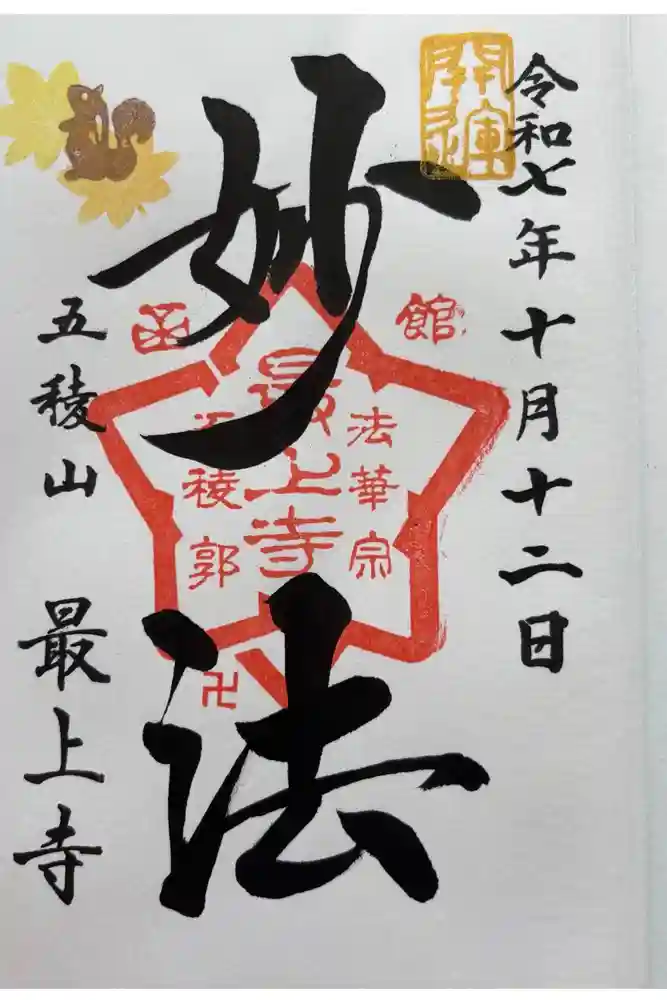 開運
令和七年十月十二日
妙法
函館
法華宗
最上寺
五稜郭
卍
五稜山 最上寺